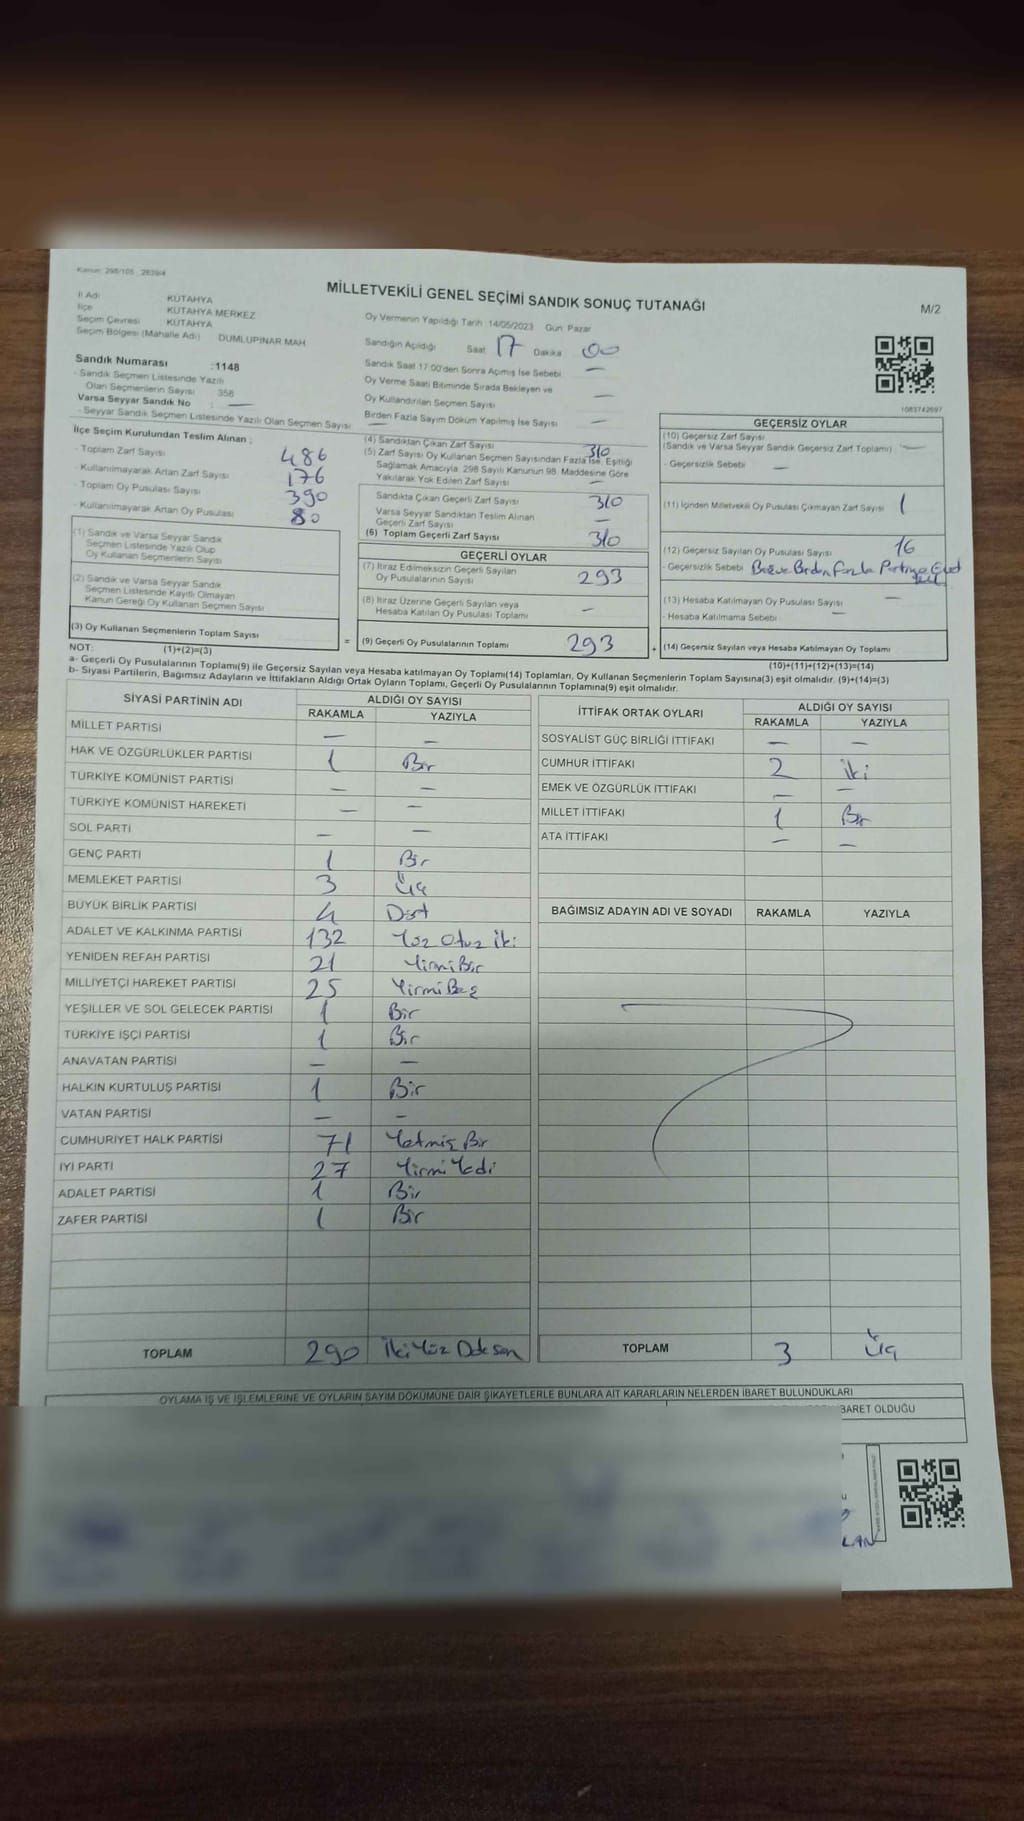 Kanun: 298/105 , 2839/4
MİLLETVEKİLİ GENEL SEÇİMİ SANDIK SONUÇ TUTANAĞI
M/2
İl Adı KÜTAHYA
İlçe KÜTAHYA MERKEZ
Seçim Çevresi KÜTAHYA
Seçim Bölgesi (Mahalle Adı) DUMLUPINAR MAH.
Oy Vermenin Yapıldığı Tarih : 14/05/2023 Gün: Pazar
Sandığın Açıldığı Saat 17 Dakika 00
Sandık Saat 17:00'den Sonra Açılmış İse Sebebi —
Oy Verme Saati Bitiminde Sırada Bekleyen ve
Oy Kullandırılan Seçmen Sayısı —
Birden Fazla Sayım Döküm Yapılmış İse Sayısı —
Sandık Numarası : 1148
- Sandık Seçmen Listesinde Yazılı
Olan Seçmenlerin Sayısı 358
Varsa Seyyar Sandık No : —
- Seyyar Sandık Seçmen Listesinde Yazılı Olan Seçmen Sayısı —
1083742697
İlçe Seçim Kurulundan Teslim Alınan ;
- Toplam Zarf Sayısı 486
- Kullanılmayarak Artan Zarf Sayısı 176
- Toplam Oy Pusulası Sayısı 390
- Kullanılmayarak Artan Oy Pusulası 80
(1) Sandık ve Varsa Seyyar Sandık
Seçmen Listesinde Yazılı Olup
Oy Kullanan Seçmenlerin Sayısı
(2) Sandık ve Varsa Seyyar Sandık
Seçmen Listesinde Kayıtlı Olmayan
Kanun Gereği Oy Kullanan Seçmen Sayısı
(3) Oy Kullanan Seçmenlerin Toplam Sayısı
=
(4) Sandıktan Çıkan Zarf Sayısı 310
(5) Zarf Sayısı Oy Kullanan Seçmen Sayısından Fazla İse, Eşitliği
Sağlamak Amacıyla, 298 Sayılı Kanunun 98. Maddesine Göre
Yakılarak Yok Edilen Zarf Sayısı —
Sandıkta Çıkan Geçerli Zarf Sayısı 310
Varsa Seyyar Sandıktan Teslim Alınan
Geçerli Zarf Sayısı —
(6) Toplam Geçerli Zarf Sayısı 310
GEÇERLİ OYLAR
(7) İtiraz Edilmeksizin Geçerli Sayılan
Oy Pusulalarının Sayısı 293
(8) İtiraz Üzerine Geçerli Sayılan veya
Hesaba Katılan Oy Pusulası Toplamı —
(9) Geçerli Oy Pusulalarının Toplamı 293
+
GEÇERSİZ OYLAR
(10) Geçersiz Zarf Sayısı
(Sandık ve Varsa Seyyar Sandık Geçersiz Zarf Toplamı) —
- Geçersizlik Sebebi —
(11) İçinden Milletvekili Oy Pusulası Çıkmayan Zarf Sayısı 1
(12) Geçersiz Sayılan Oy Pusulası Sayısı 16
- Geçersizlik Sebebi Boş ve Birden Fazla Partiye
(13) Hesaba Katılmayan Oy Pusulası Sayısı —
- Hesaba Katılmama Sebebi
(14) Geçersiz Sayılan veya Hesaba Katılmayan Oy Toplamı
NOT: (1)+(2)=(3)
(10)+(11)+(12)+(13)=(14)
a- Geçerli Oy Pusulalarının Toplamı(9) ile Geçersiz Sayılan veya Hesaba katılmayan Oy Toplamı(14) Toplamları, Oy Kullanan Seçmenlerin Toplam Sayısına(3) eşit olmalıdır. (9)+(14)=(3)
b- Siyasi Partilerin, Bağımsız Adayların ve İttifakların Aldığı Ortak Oyların Toplamı, Geçerli Oy Pusulalarının Toplamına(9) eşit olmalıdır.
SİYASİ PARTİNİN ADI ALDIĞI OY SAYISI
RAKAMLA YAZIYLA
MİLLET PARTİSİ — —
HAK VE ÖZGÜRLÜKLER PARTİSİ 1 Bir
TÜRKİYE KOMÜNİST PARTİSİ — —
TÜRKİYE KOMÜNİST HAREKETİ — —
SOL PARTİ — —
GENÇ PARTİ 1 Bir
MEMLEKET PARTİSİ 3 Üç
BÜYÜK BİRLİK PARTİSİ 4 Dört
ADALET VE KALKINMA PARTİSİ 132 Yüz Otuz İki
YENİDEN REFAH PARTİSİ 21 Yirmi Bir
MİLLİYETÇİ HAREKET PARTİSİ 25 Yirmi Beş
YEŞİLLER VE SOL GELECEK PARTİSİ 1 Bir
TÜRKİYE İŞÇİ PARTİSİ 1 Bir
ANAVATAN PARTİSİ — —
HALKIN KURTULUŞ PARTİSİ 1 Bir
VATAN PARTİSİ — —
CUMHURİYET HALK PARTİSİ 71 Yetmiş Bir
İYİ PARTİ 27 Yirmi Yedi
ADALET PARTİSİ 1 Bir
ZAFER PARTİSİ 1 Bir
TOPLAM 290 İki Yüz Doksan
İTTİFAK ORTAK OYLARI ALDIĞI OY SAYISI
RAKAMLA YAZIYLA
SOSYALİST GÜÇ BİRLİĞİ İTTİFAKI — —
CUMHUR İTTİFAKI 2 İki
EMEK VE ÖZGÜRLÜK İTTİFAKI — —
MİLLET İTTİFAKI 1 Bir
ATA İTTİFAKI — —
BAĞIMSIZ ADAYIN ADI VE SOYADI RAKAMLA YAZIYLA
TOPLAM 3 Üç
OYLAMA İŞ VE İŞLEMLERİNE VE OYLARIN SAYIM DÖKÜMÜNE DAİR ŞİKAYETLERLE BUNLARA AİT KARARLARIN NELERDEN İBARET BULUNDUKLARI
BARET OLDUĞU
LAN